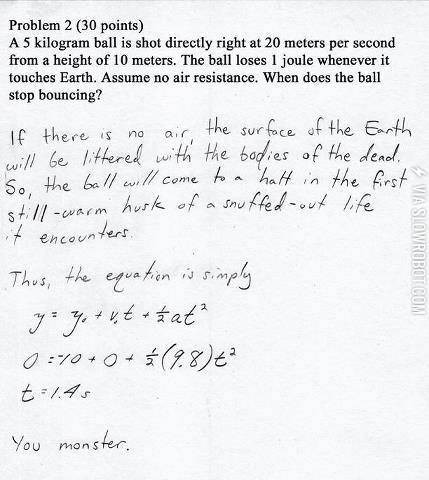 Problem 2 (30 points)
A 5 kilogram ball is shot directly right at 20 meters per second
from a height of 10 meters. The ball loses 1 joule whenever it
touches Earth. Assume no air resistance. When does the ball
stop bouncing?
If there is no air, the surface of the Earth
will be littered with the bodies of the dead.
So, the ball will come to a halt in the first
still-warm husk of a snuffed-out life
it encounters.
Thus, the equation is simply
y = y₀ + v₀t + ½at²
0 = -10 + 0 + ½(9.8)t²
t = 1.4s
You monster.
VIA SLOWROBOT.COM